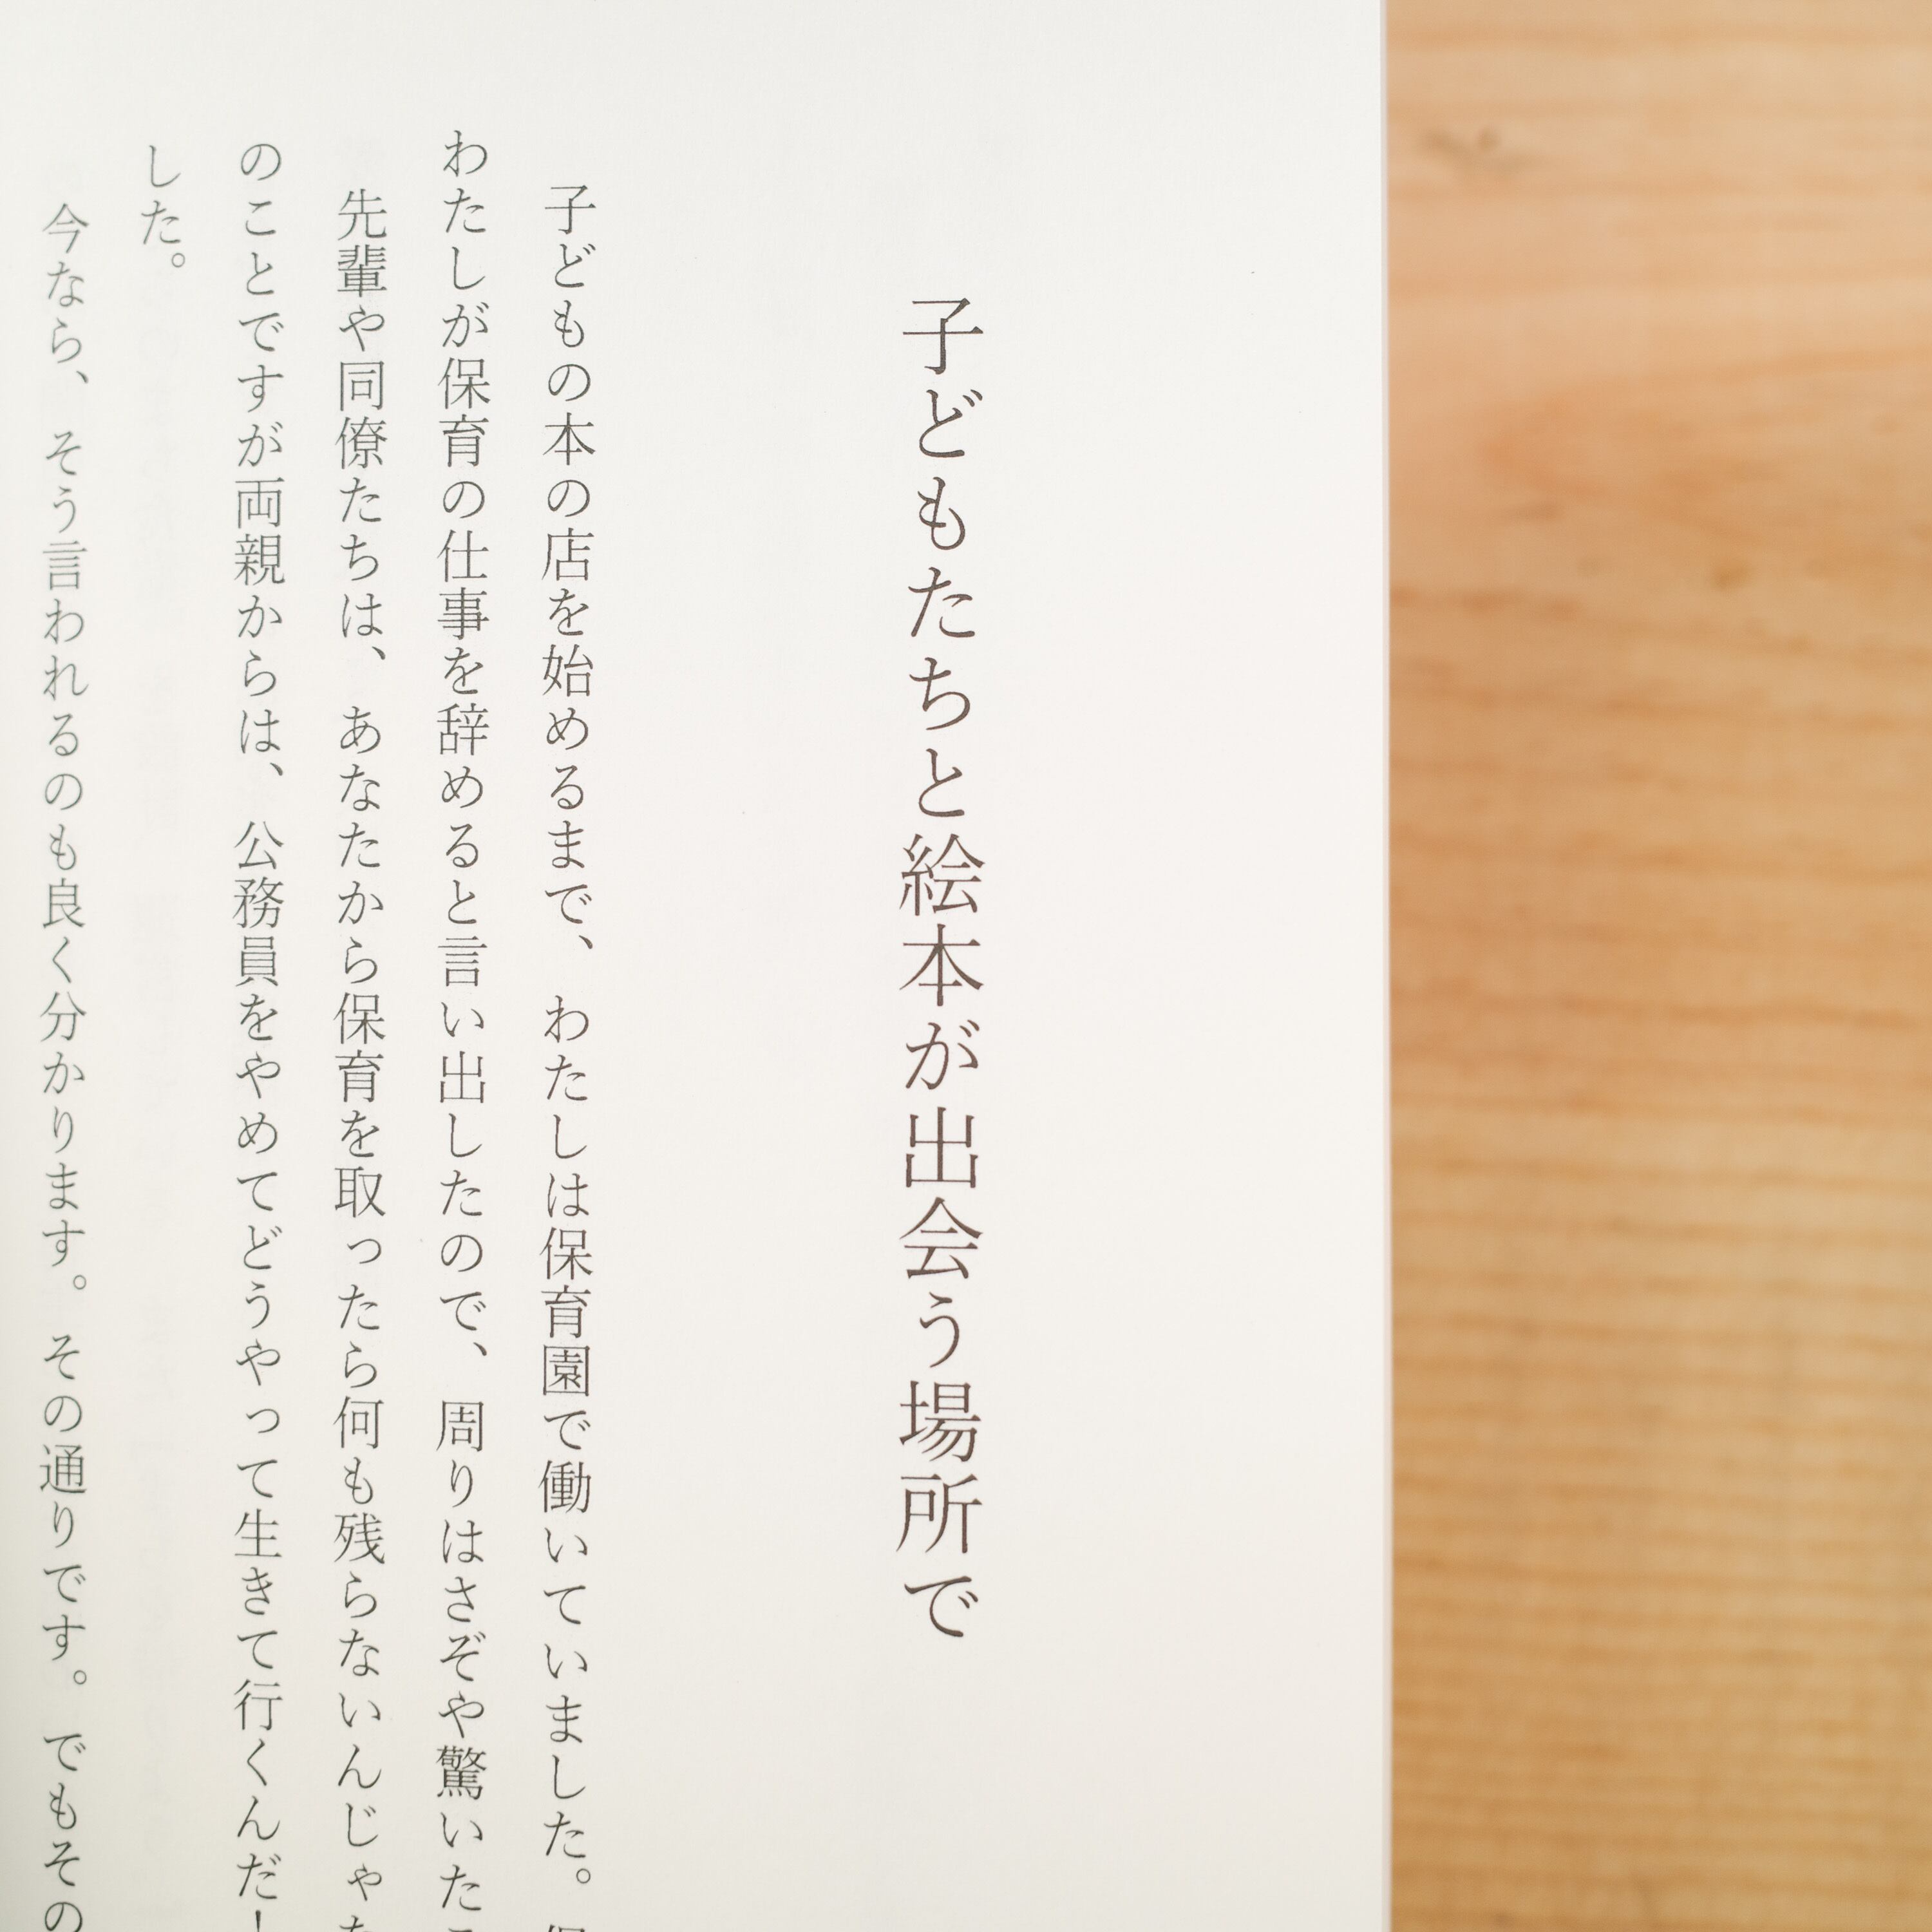 子どもたちと絵本が出会う場所で
子どもの本の店を始めるまで、わたしは保育園で働いていました。
わたしが保育の仕事を辞めると言い出したので、周りはさぞや驚いた
先輩や同僚たちは、あなたから保育を取ったら何も残らないんじゃ
のことですが両親からは、公務員をやめてどうやって生きて行くんだ！
した。
今なら、そう言われるのも良く分かります。その通りです。でもその